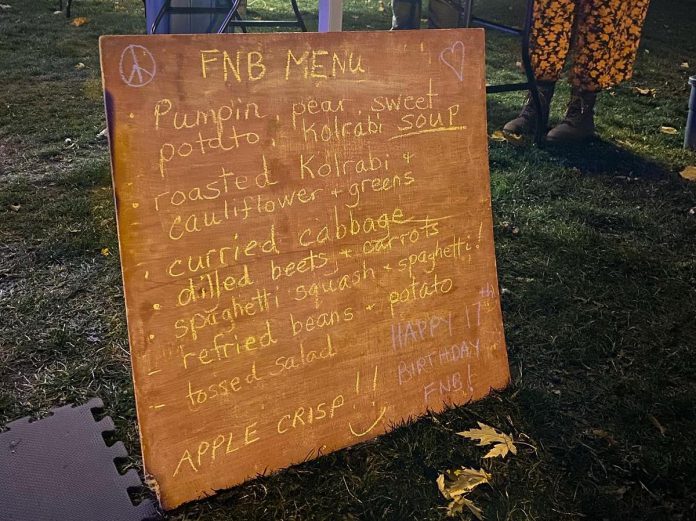 FNB MENU
• Pumpin, pear, sweet
potato, Kolrabi SOUP
• roasted Kolrabi +
cauliflower + greens
• curried cabbage
• dilled beets + carrots
• spaghetti squash + spaghetti!
– refried beans + potato
– tossed salad
APPLE CRISP!!
HAPPY 17th
BIRTHDAY
FNB!